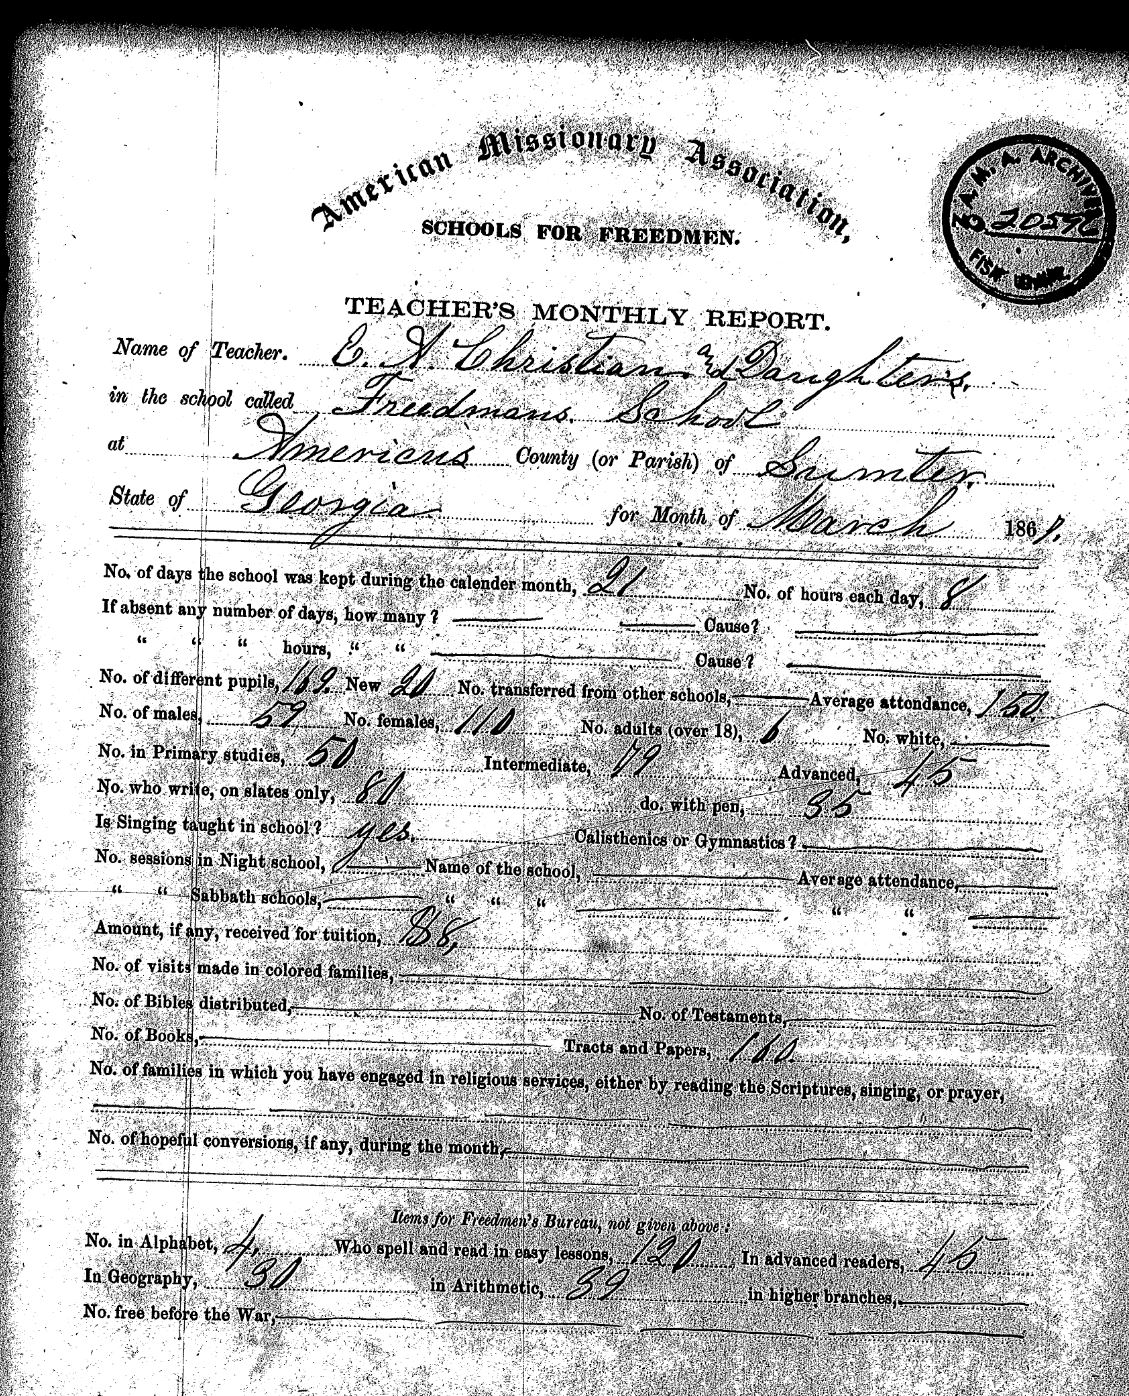 American Missionary Association,
SCHOOLS FOR FREEDMEN.
A. M. A. ARCHIVES
No. 20596
FISK UNIV.
TEACHER'S MONTHLY REPORT.
Name of Teacher. C. A. Christian and Daughters.
in the school called Freedmans. School
at Americus County (or Parish) of Sumter.
State of Georgia for Month of March 1867.
No. of days the school was kept during the calender month, 21 No. of hours each day, 8
If absent any number of days, how many? Cause?
" " " hours, " " Cause?
No. of different pupils, 169. New 20 No. transferred from other schools, Average attendance, 150.
No. of males, 59 No. females, 110 No. adults (over 18), 6 No. white,
No. in Primary studies, 50 Intermediate, 79 Advanced, 45
No. who write, on slates only, 80 do. with pen, 35
Is Singing taught in school? yes. Calisthenics or Gymnastics?
No. sessions in Night school, Name of the school, Average attendance,
" " Sabbath schools, " " " " "
Amount, if any, received for tuition, $8,
No. of visits made in colored families,
No. of Bibles distributed, No. of Testaments,
No. of Books, Tracts and Papers, 160.
No. of families in which you have engaged in religious services, either by reading the Scriptures, singing, or prayer,
No. of hopeful conversions, if any, during the month,
Items for Freedmen's Bureau, not given above:
No. in Alphabet, 4, Who spell and read in easy lessons, 120 In advanced readers, 45
In Geography, 30 in Arithmetic, 39 in higher branches,
No. free before the War,